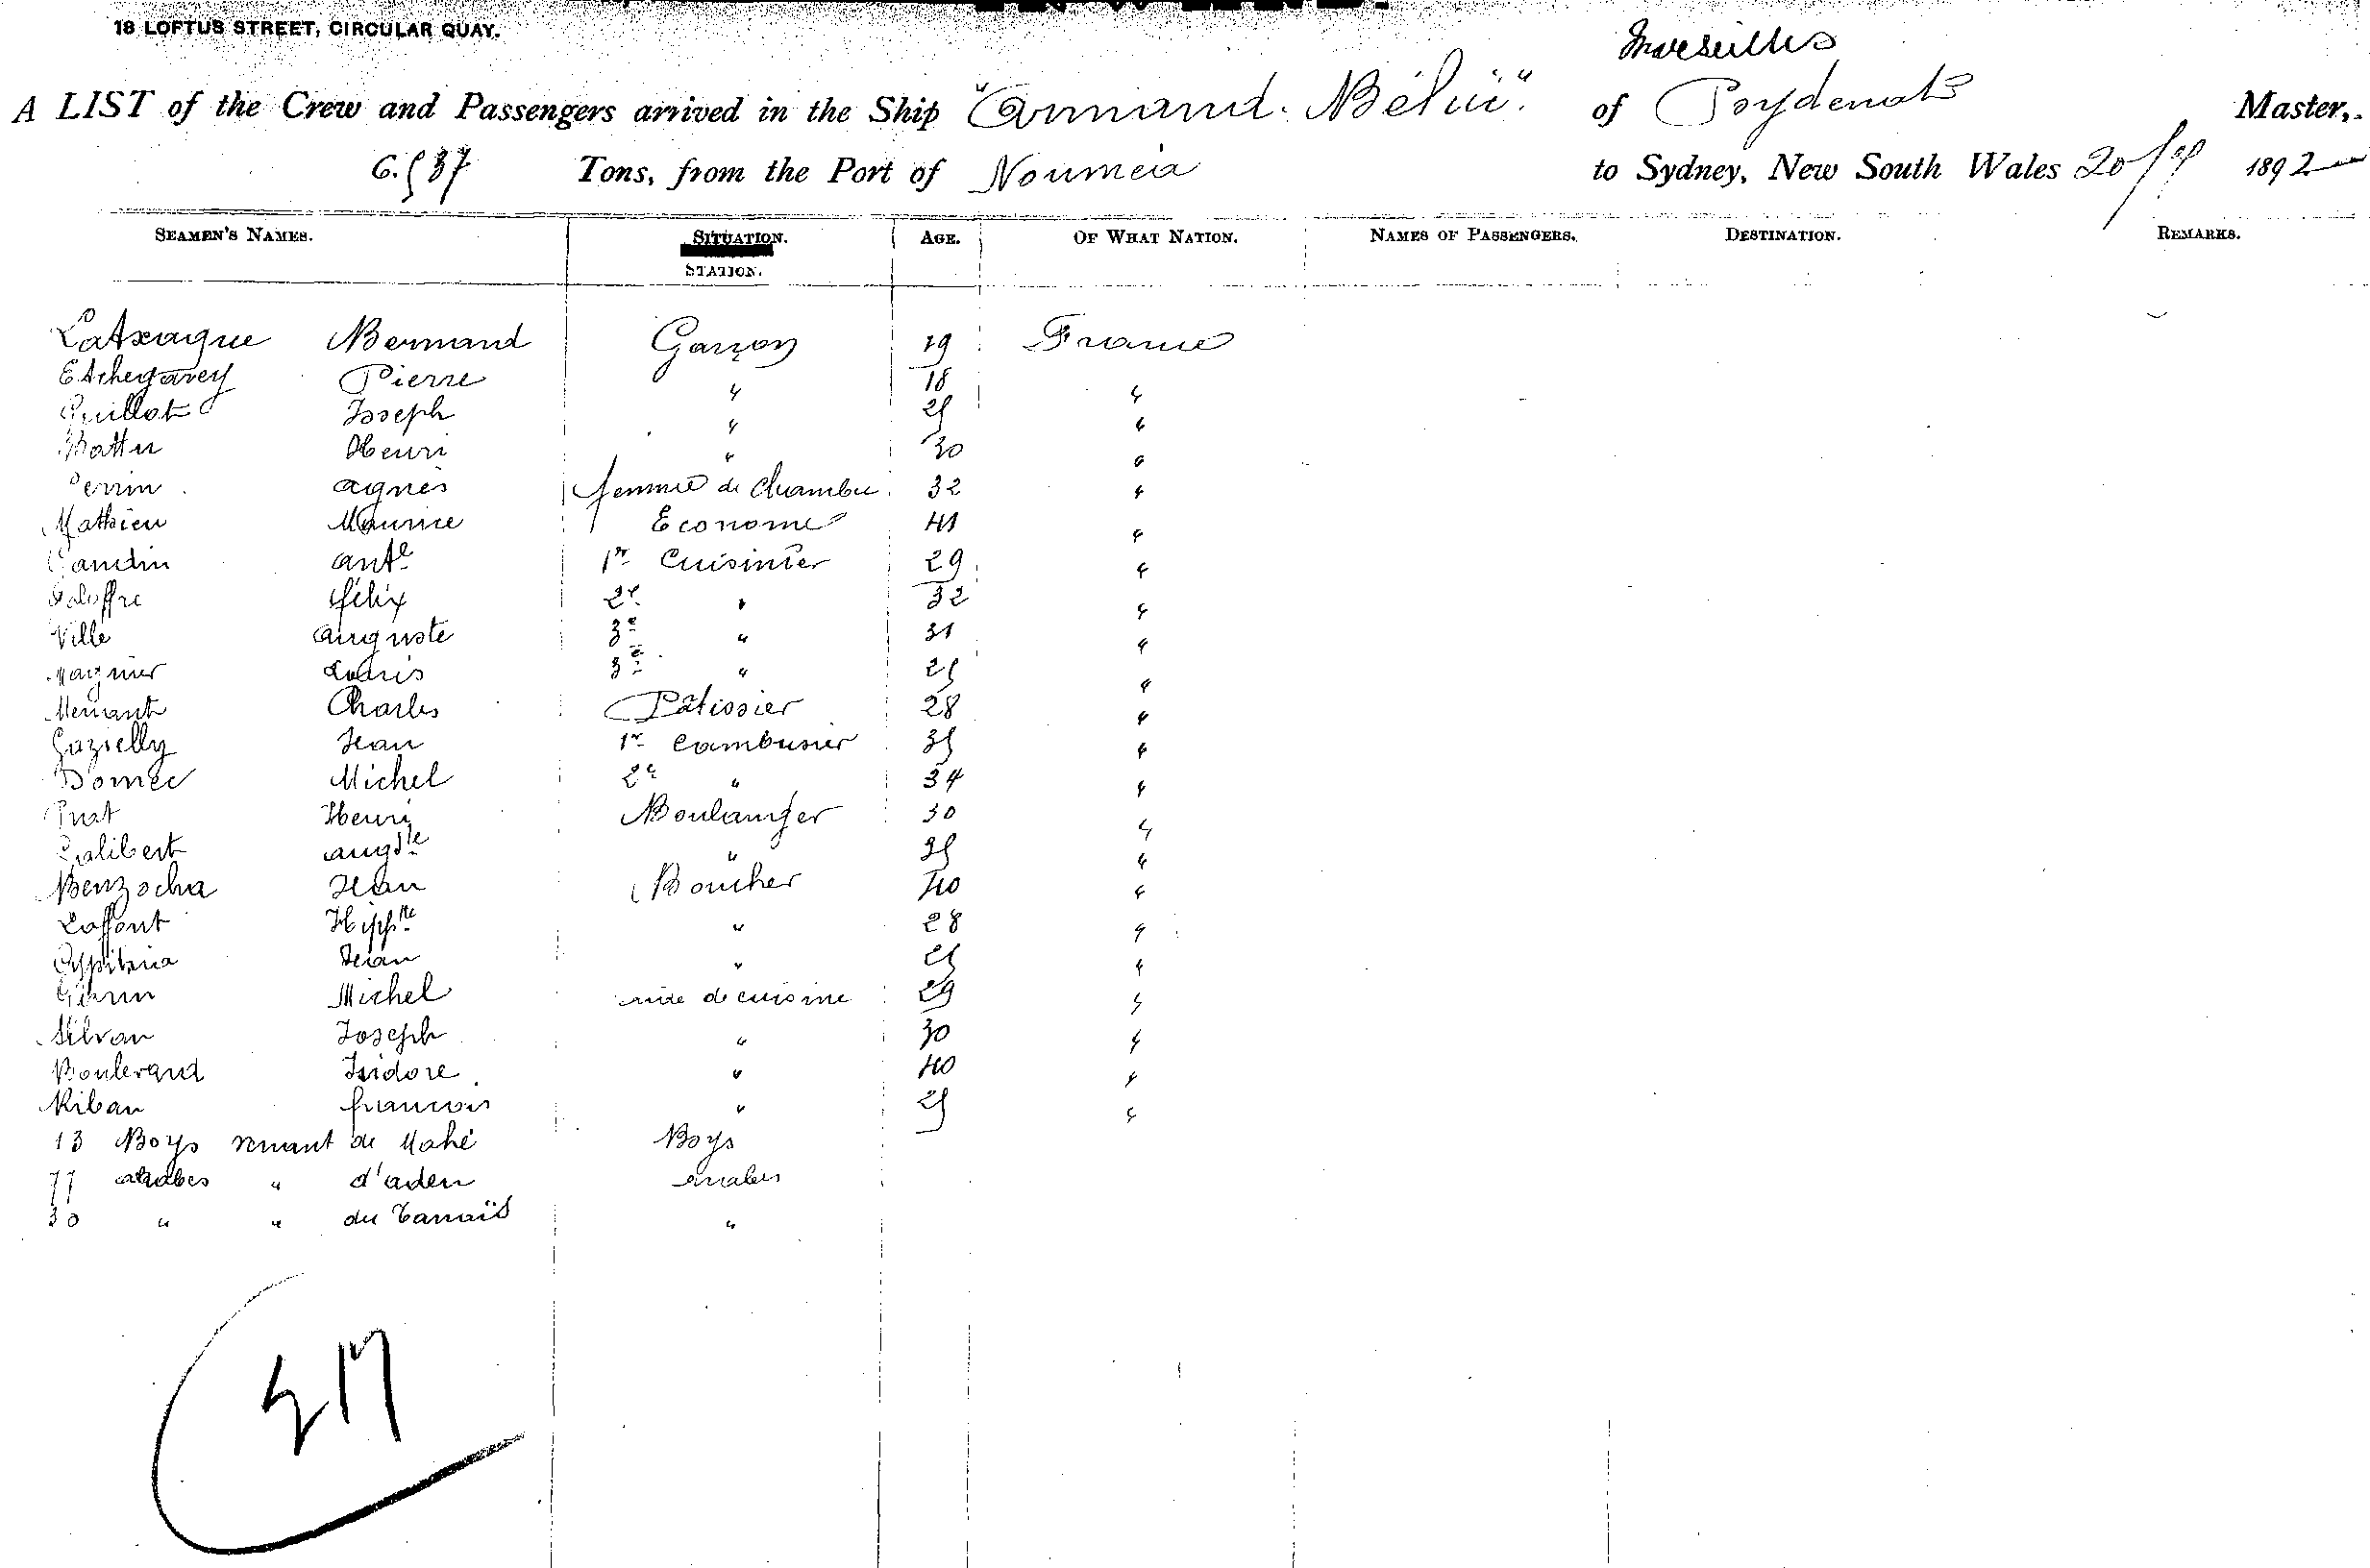 18 LOFTUS STREET, CIRCULAR QUAY.
Marseilles
A LIST of the Crew and Passengers arrived in the Ship "Armand. Béhic". of Poydenot Master,
6.537 Tons, from the Port of Nouméa to Sydney, New South Wales 20 1892
SEAMEN'S NAMES. SITUATION. AGE. OF WHAT NATION. NAMES OF PASSENGERS. DESTINATION. REMARKS.
STATION.
Latxague Bernard Garçon 19 France
Etchegarey Pierre " 18 "
Guillot Joseph " 25 "
Henri " 30 "
Perrin Agnès femme de chambre 32 "
Mathieu Maurice Econome 41 "
Gandin ant.e 1er Cuisinier 29 "
félix 2e " 32 "
Ville Auguste 3e " 31 "
Magnier Louis 3e " 25 "
Charles Pâtissier 28 "
Gazielly Jean 1er Cambusier 35 "
Domec Michel 2e " 34 "
Prat Henri Boulanger 30 "
Galibert augste " 35 "
Benzocha Jean Boucher 40 "
Laffont Hippte " 28 "
Jean " 25 "
Michel aide de cuisine 29 "
Silvan Joseph " 30 "
Boulevard Isidore " 40 "
Riban francois " 25 "
13 Boys venant de Mahé Boys
77 arabes " d'aden arabes
30 " " du Tanaïs "
217